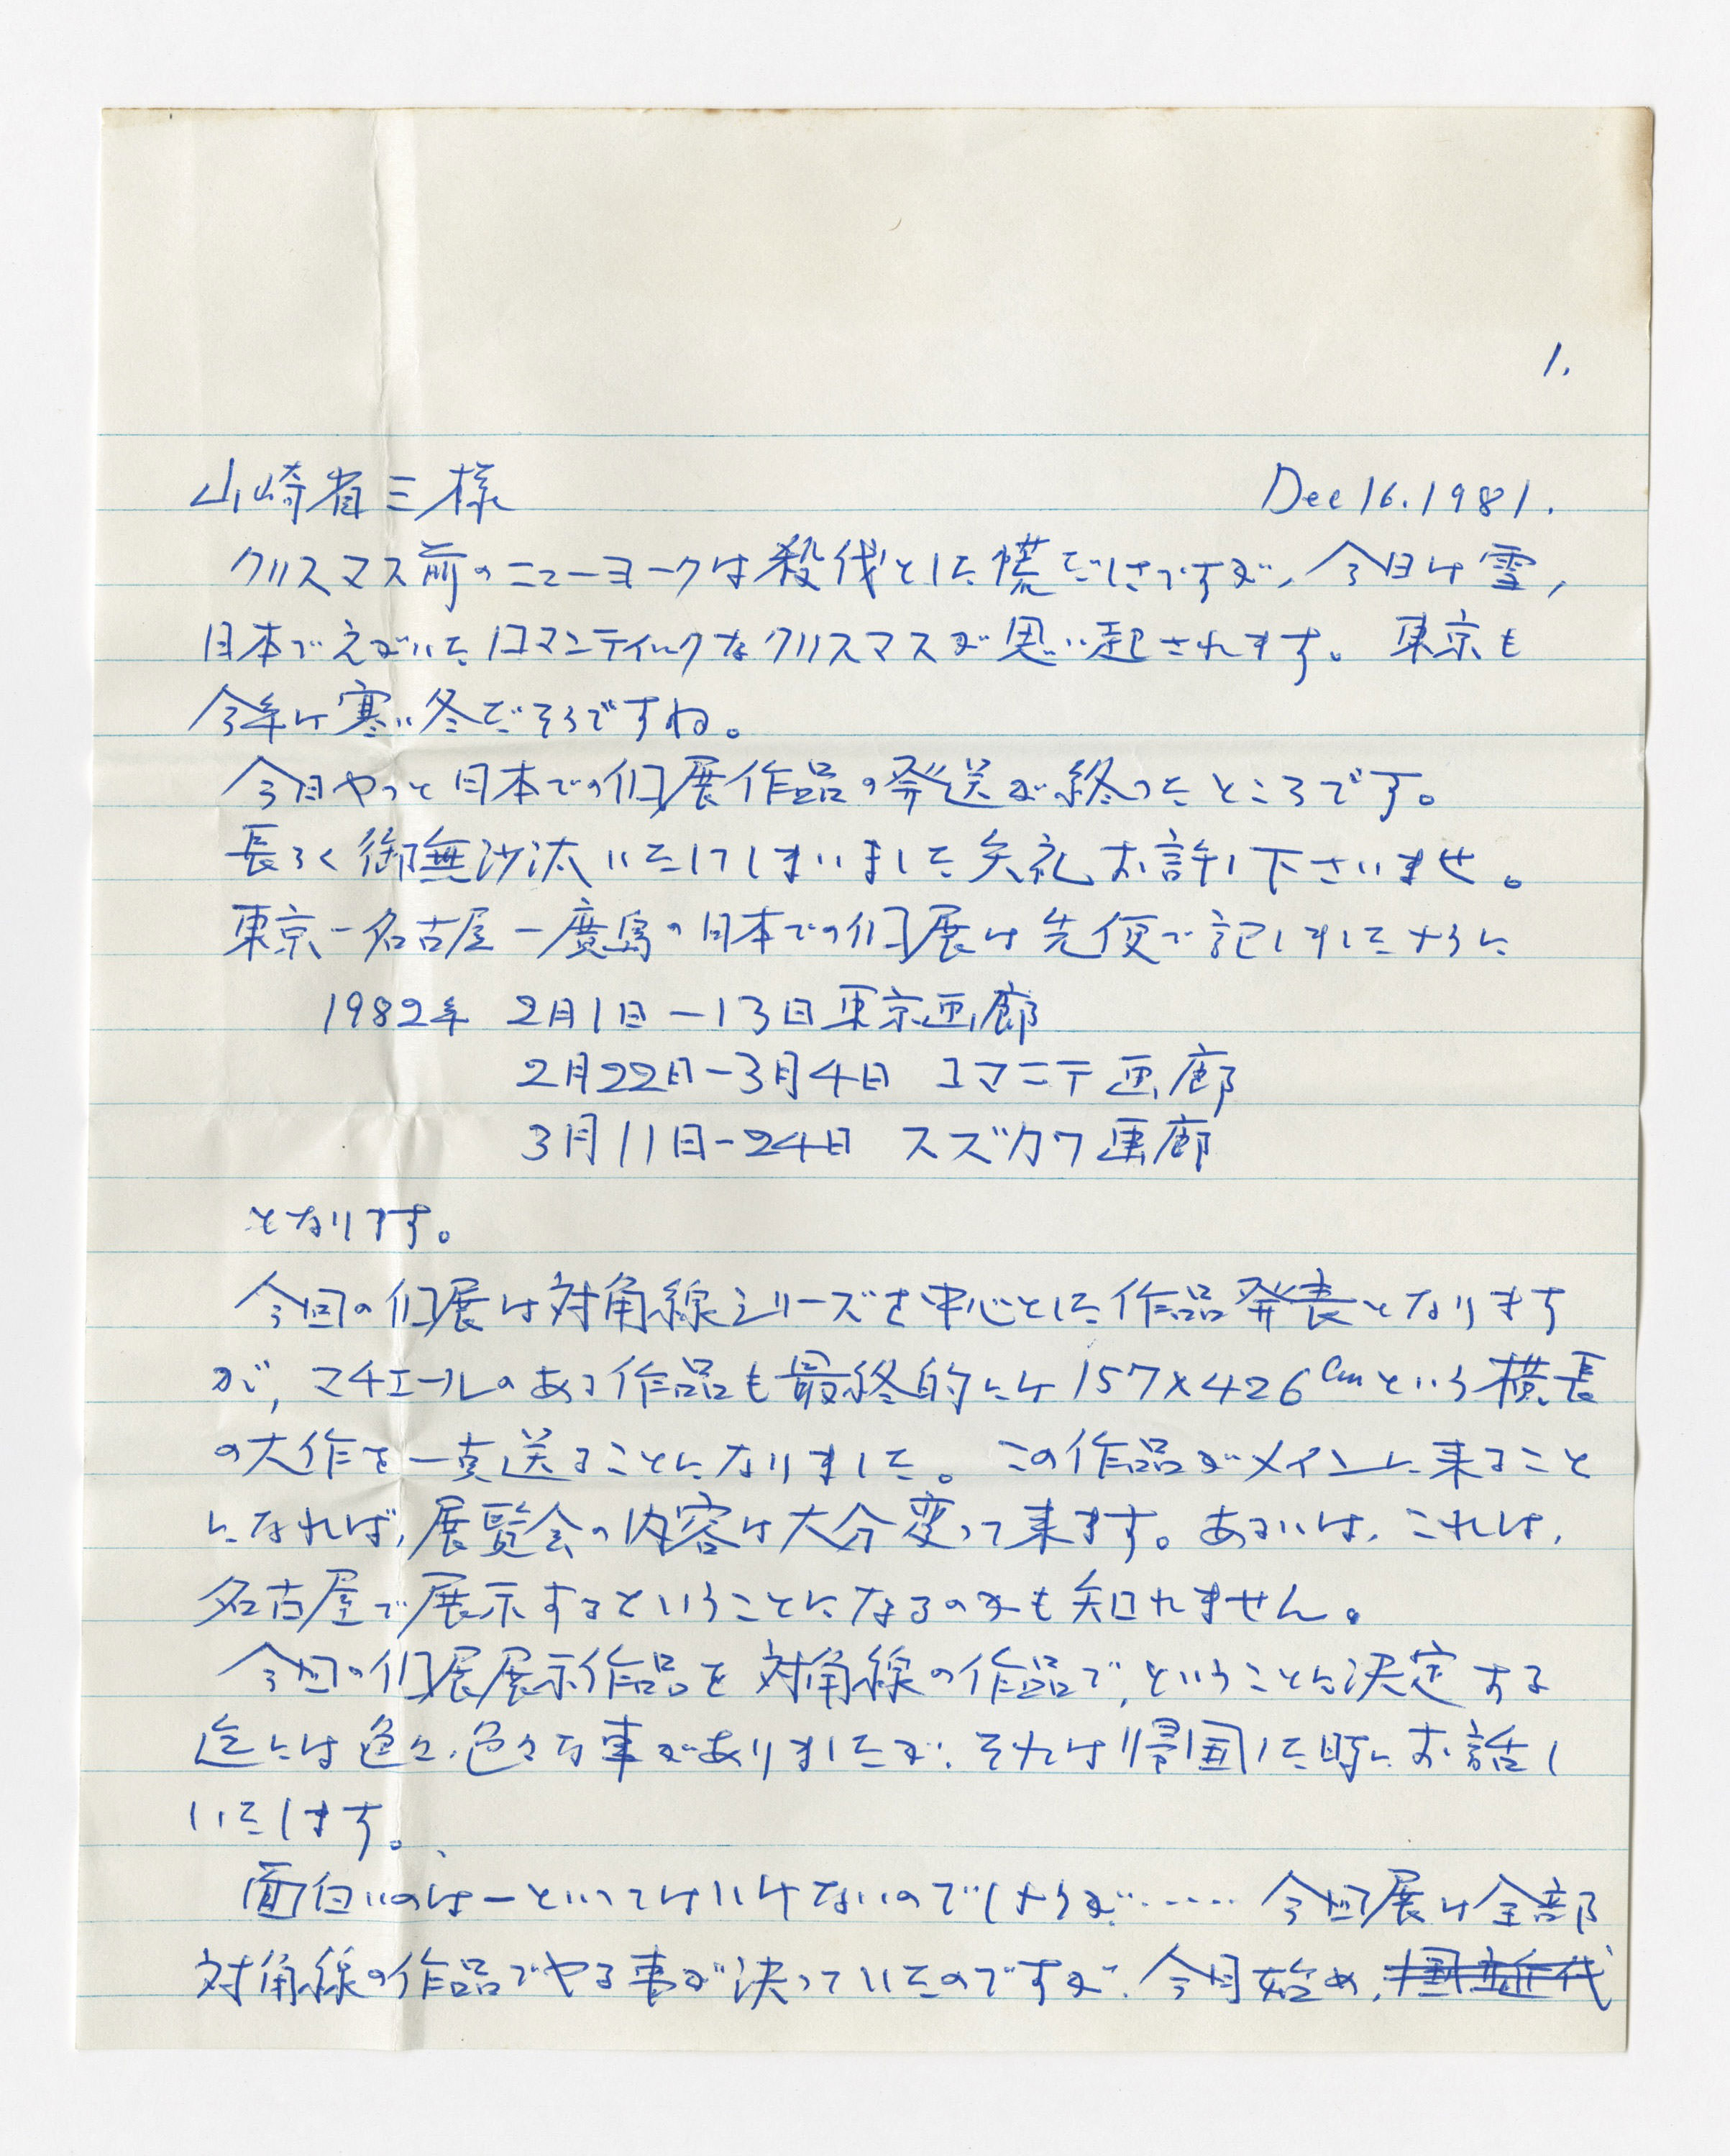 1.
山崎省三様 Dec 16. 1981.
クリスマス前のニューヨークは殺伐とした慌だしさですが、今日は雪,
日本でえがいたロマンティックなクリスマスが思い起されます。東京も
今年は寒い冬だそうですね。
今日やっと日本での個展作品の発送が終ったところです。
長らく御無沙汰いたしてしまいました失礼お許し下さいませ。
東京ー名古屋ー廣島の日本での個展は先便で記しましたように
1982年 2月1日ー13日東京画廊
2月22日ー3月4日 コマニテ画廊
3月11日ー24日 スズカワ画廊
となります。
今回の個展は対角線シリーズを中心とした作品発表となります
が, マチエールのある作品も最終的には157×426cmという横長
の大作を一点送ることになりました。この作品がメインに来ること
になれば, 展覧会の内容は大分変って来ます。あるいは, これは,
名古屋で展示するということになるのかも知れません。
今回の個展展示作品を対角線の作品で, ということに決定する
迄には色々, 色々な事がありましたが, それは帰国した時にお話し
いたします。
面白いのはーといってはいけないのでしょうが…… 今回展は全部
対角線の作品でやる事が決っていたのですが, 今月始め,